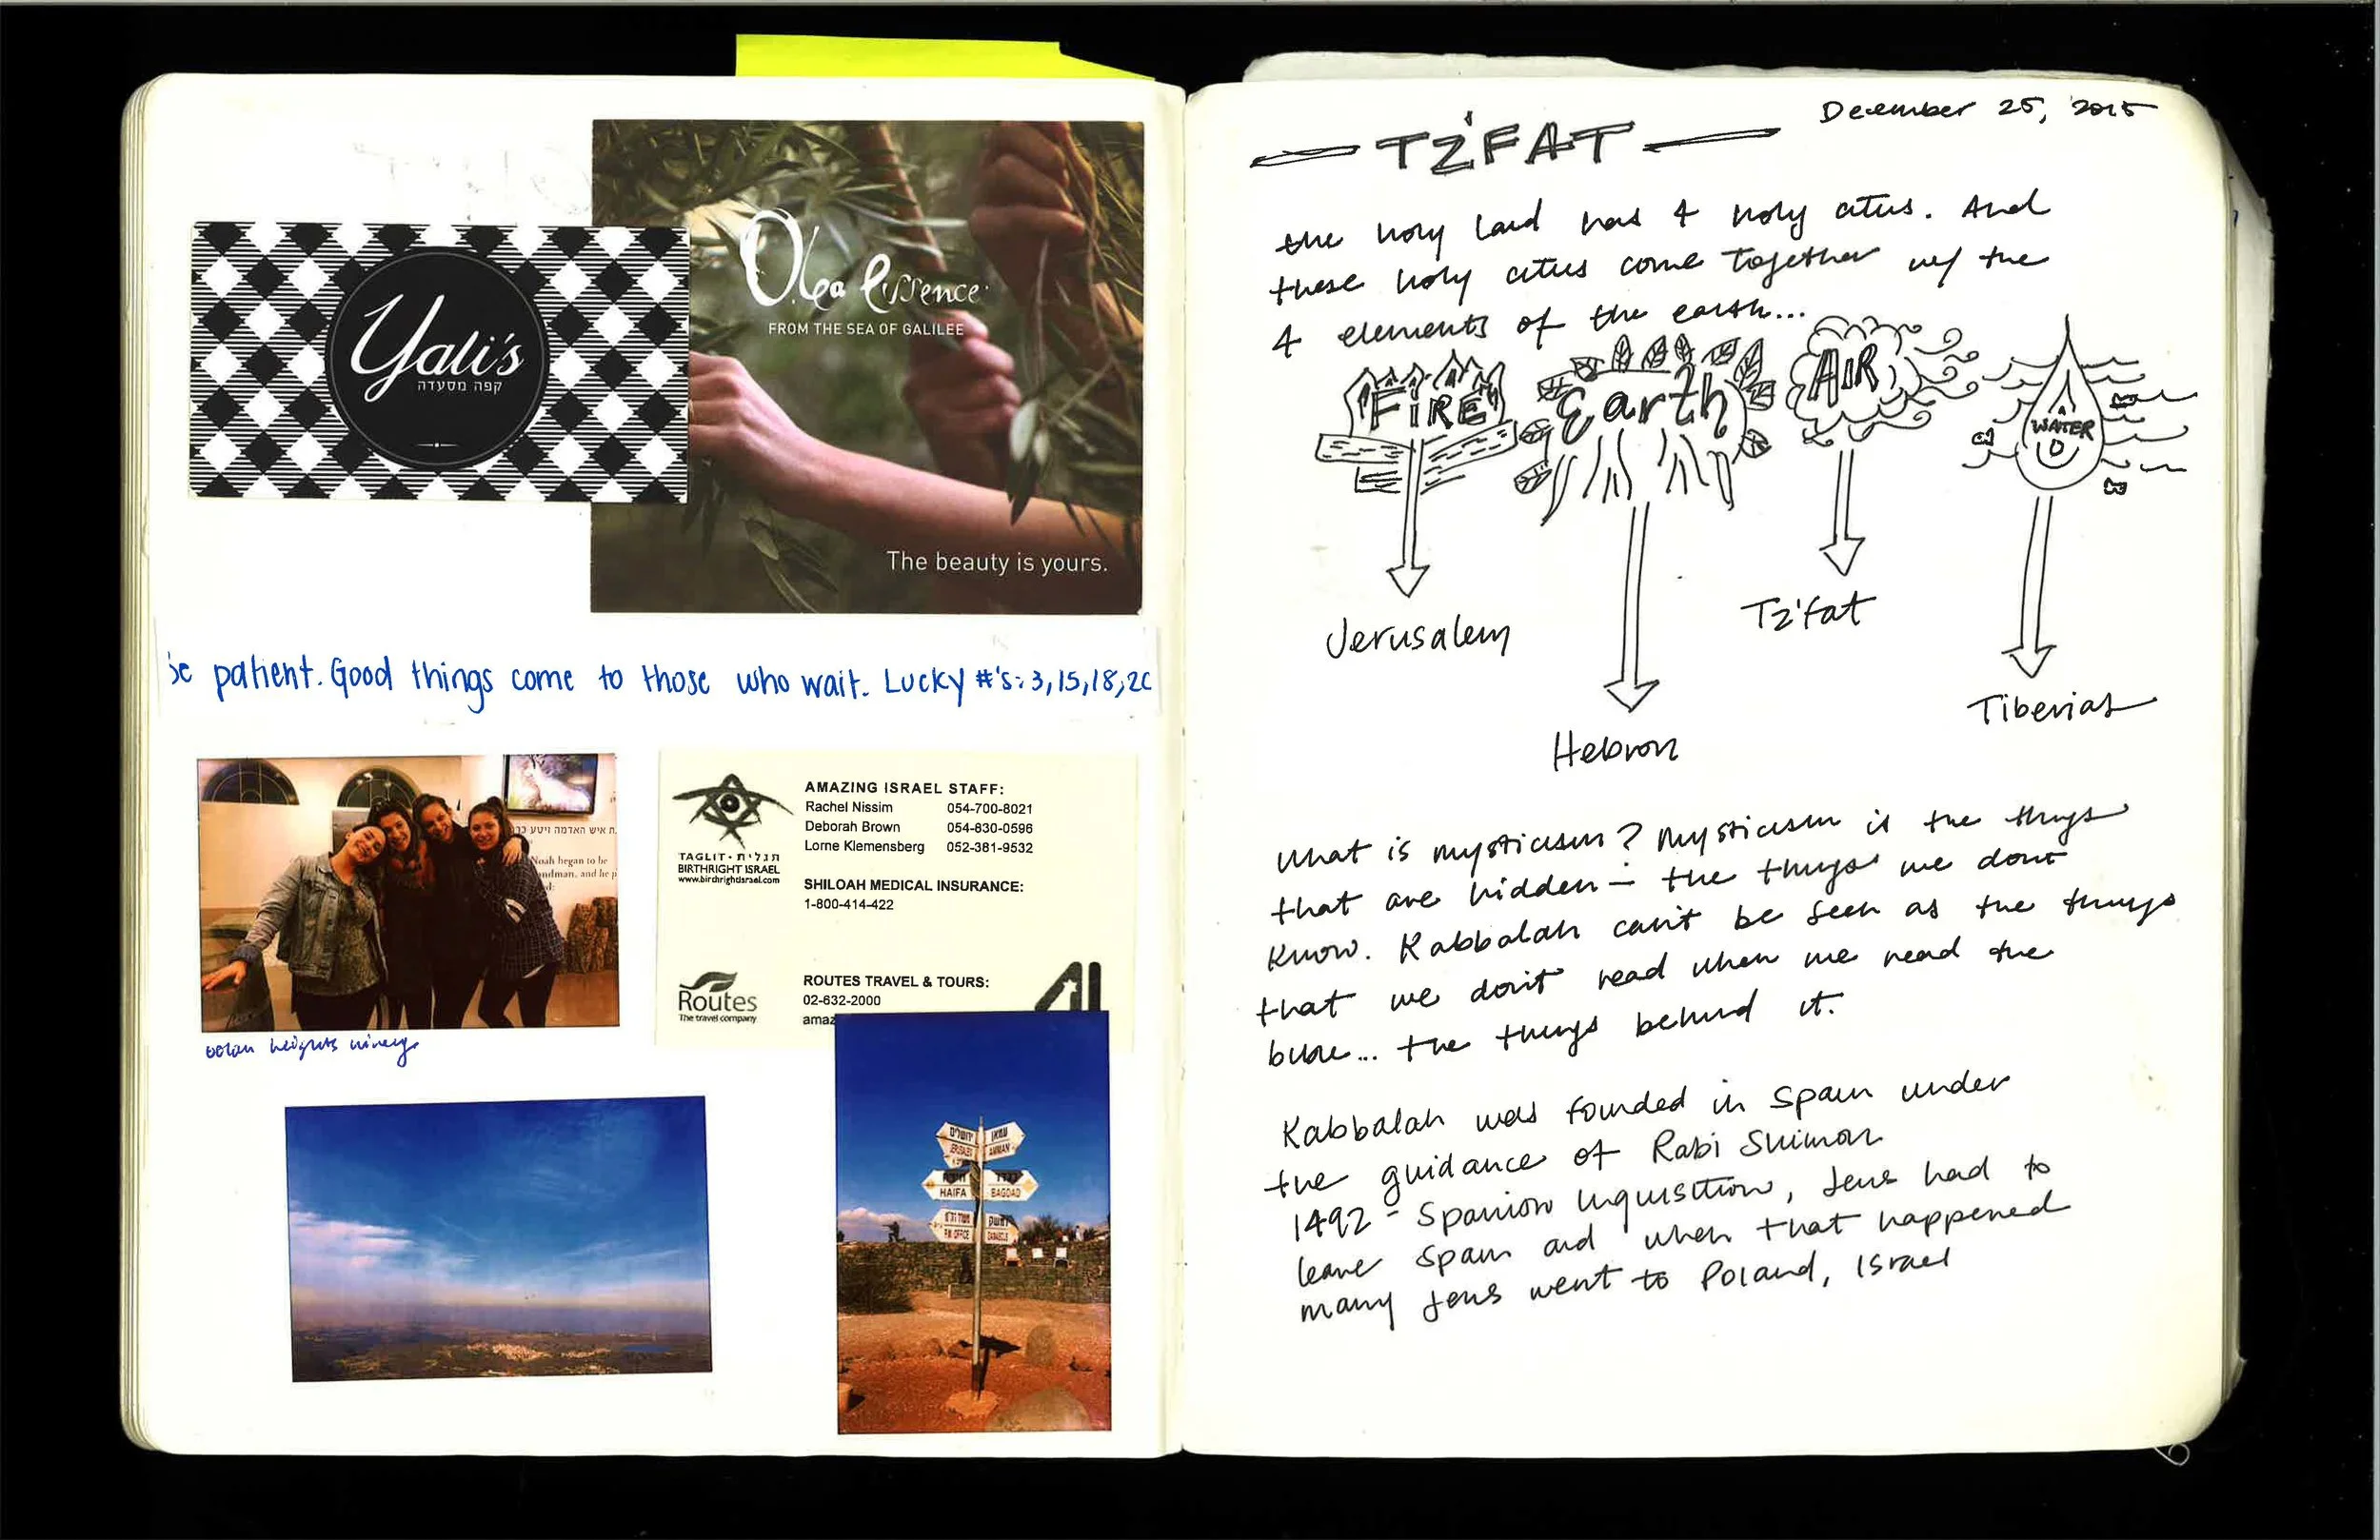 Yali's
קפה מסעדה
Olea Essence
FROM THE SEA OF GALILEE
The beauty is yours.
be patient. Good things come to those who wait. Lucky #'s: 3, 15, 18, 20
איש האדמה ויטע כר
Noah began to be
ndman, and he p
d:
golan heights winery
TAGLIT · תגלית
BIRTHRIGHT ISRAEL
www.birthrightisrael.com
AMAZING ISRAEL STAFF:
Rachel Nissim 054-700-8021
Deborah Brown 054-830-0596
Lorne Klemensberg 052-381-9532
SHILOAH MEDICAL INSURANCE:
1-800-414-422
Routes
The travel company
ROUTES TRAVEL & TOURS:
02-632-2000
amaz
ירושלים
JERUSALEM
עמאן
AMMAN
HAIFA
BAGDAD
דמשק
DAMASCUS
December 25, 2015
TZ'FAT
the holy land has 4 holy cities. And
these holy cities come together w/ the
4 elements of the earth...
FiRE
Earth
AIR
WATER
Jerusalem
Hebron
Tz'fat
Tiberias
What is mysticism? Mysticism is the things
that are hidden - the things we dont
know. Kabbalah can't be seen as the things
that we don't read when we read the
bible... the things behind it.
Kabbalah was founded in Spain under
the guidance of Rabi Shimon
1492 - Spanion Inquisition, Jews had to
leave Spain and when that happened
many Jews went to Poland, Israel